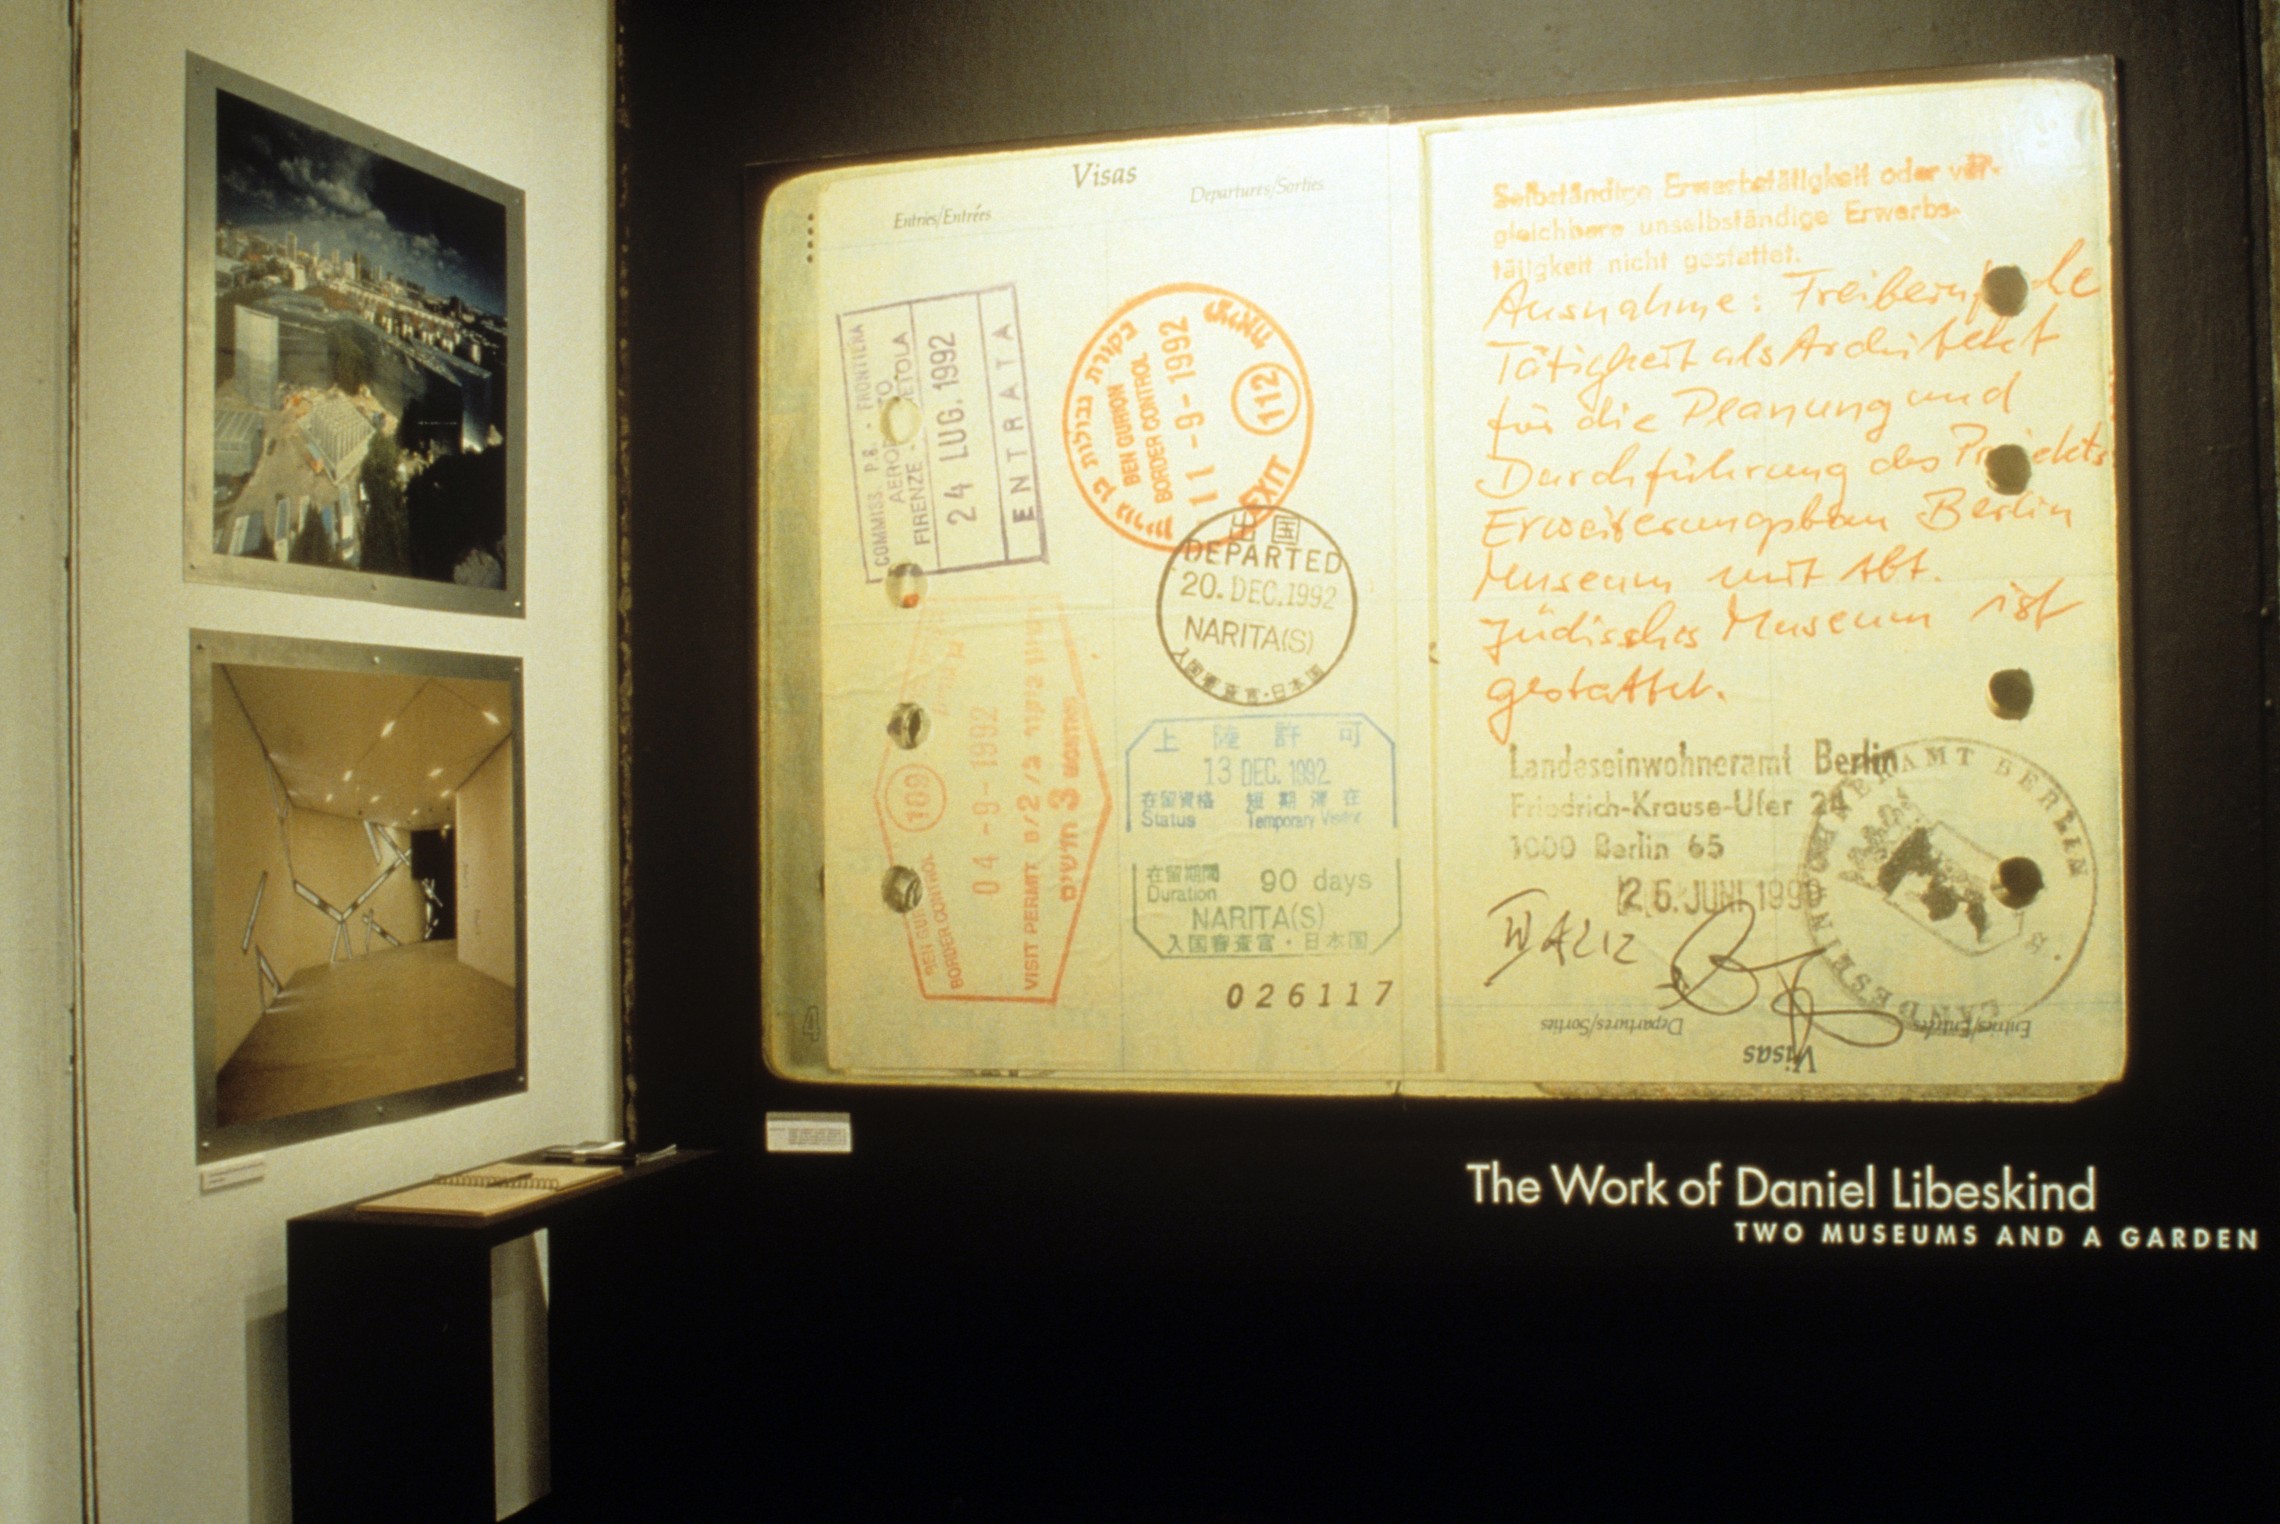 Visas
Entries/Entrées
Departures/Sorties
COMMISS. P.S. - FRONTIERA
FIRENZE -
24 LUG. 1992
ENTRATA
ביקורת גבולות
BEN GURION
BORDER CONTROL
11-9-1992
112
EXIT
出国
DEPARTED
20. DEC. 1992
NARITA(S)
入国審査官・日本国
109
04-9-1992
BORDER CONTROL
VISIT PERMIT B/2
3 חודשים
MONTHS
上陸許可
13 DEC. 1992
在留資格 短期滞在
Status Temporary Visitor
在留期間
Duration 90 days
NARITA(S)
入国審査官・日本国
026117
4
Selbständige Erwerbstätigkeit oder ver-
gleichbare unselbständige Erwerbs-
tätigkeit nicht gestattet.
Ausnahme: Freiberufliche
Tätigkeit als Architekt
für die Planung und
Durchführung des Projekts
Erweiterungsbau Berlin
Museum mit Abt.
Jüdisches Museum ist
gestattet.
Landeseinwohneramt Berlin
Friedrich-Krause-Ufer 24
1000 Berlin 65
26. JUNI 1990
LANDESEINWOHNERAMT BERLIN
Departures/Sorties
Entries/Entrées
Visas
The Work of Daniel Libeskind
TWO MUSEUMS AND A GARDEN